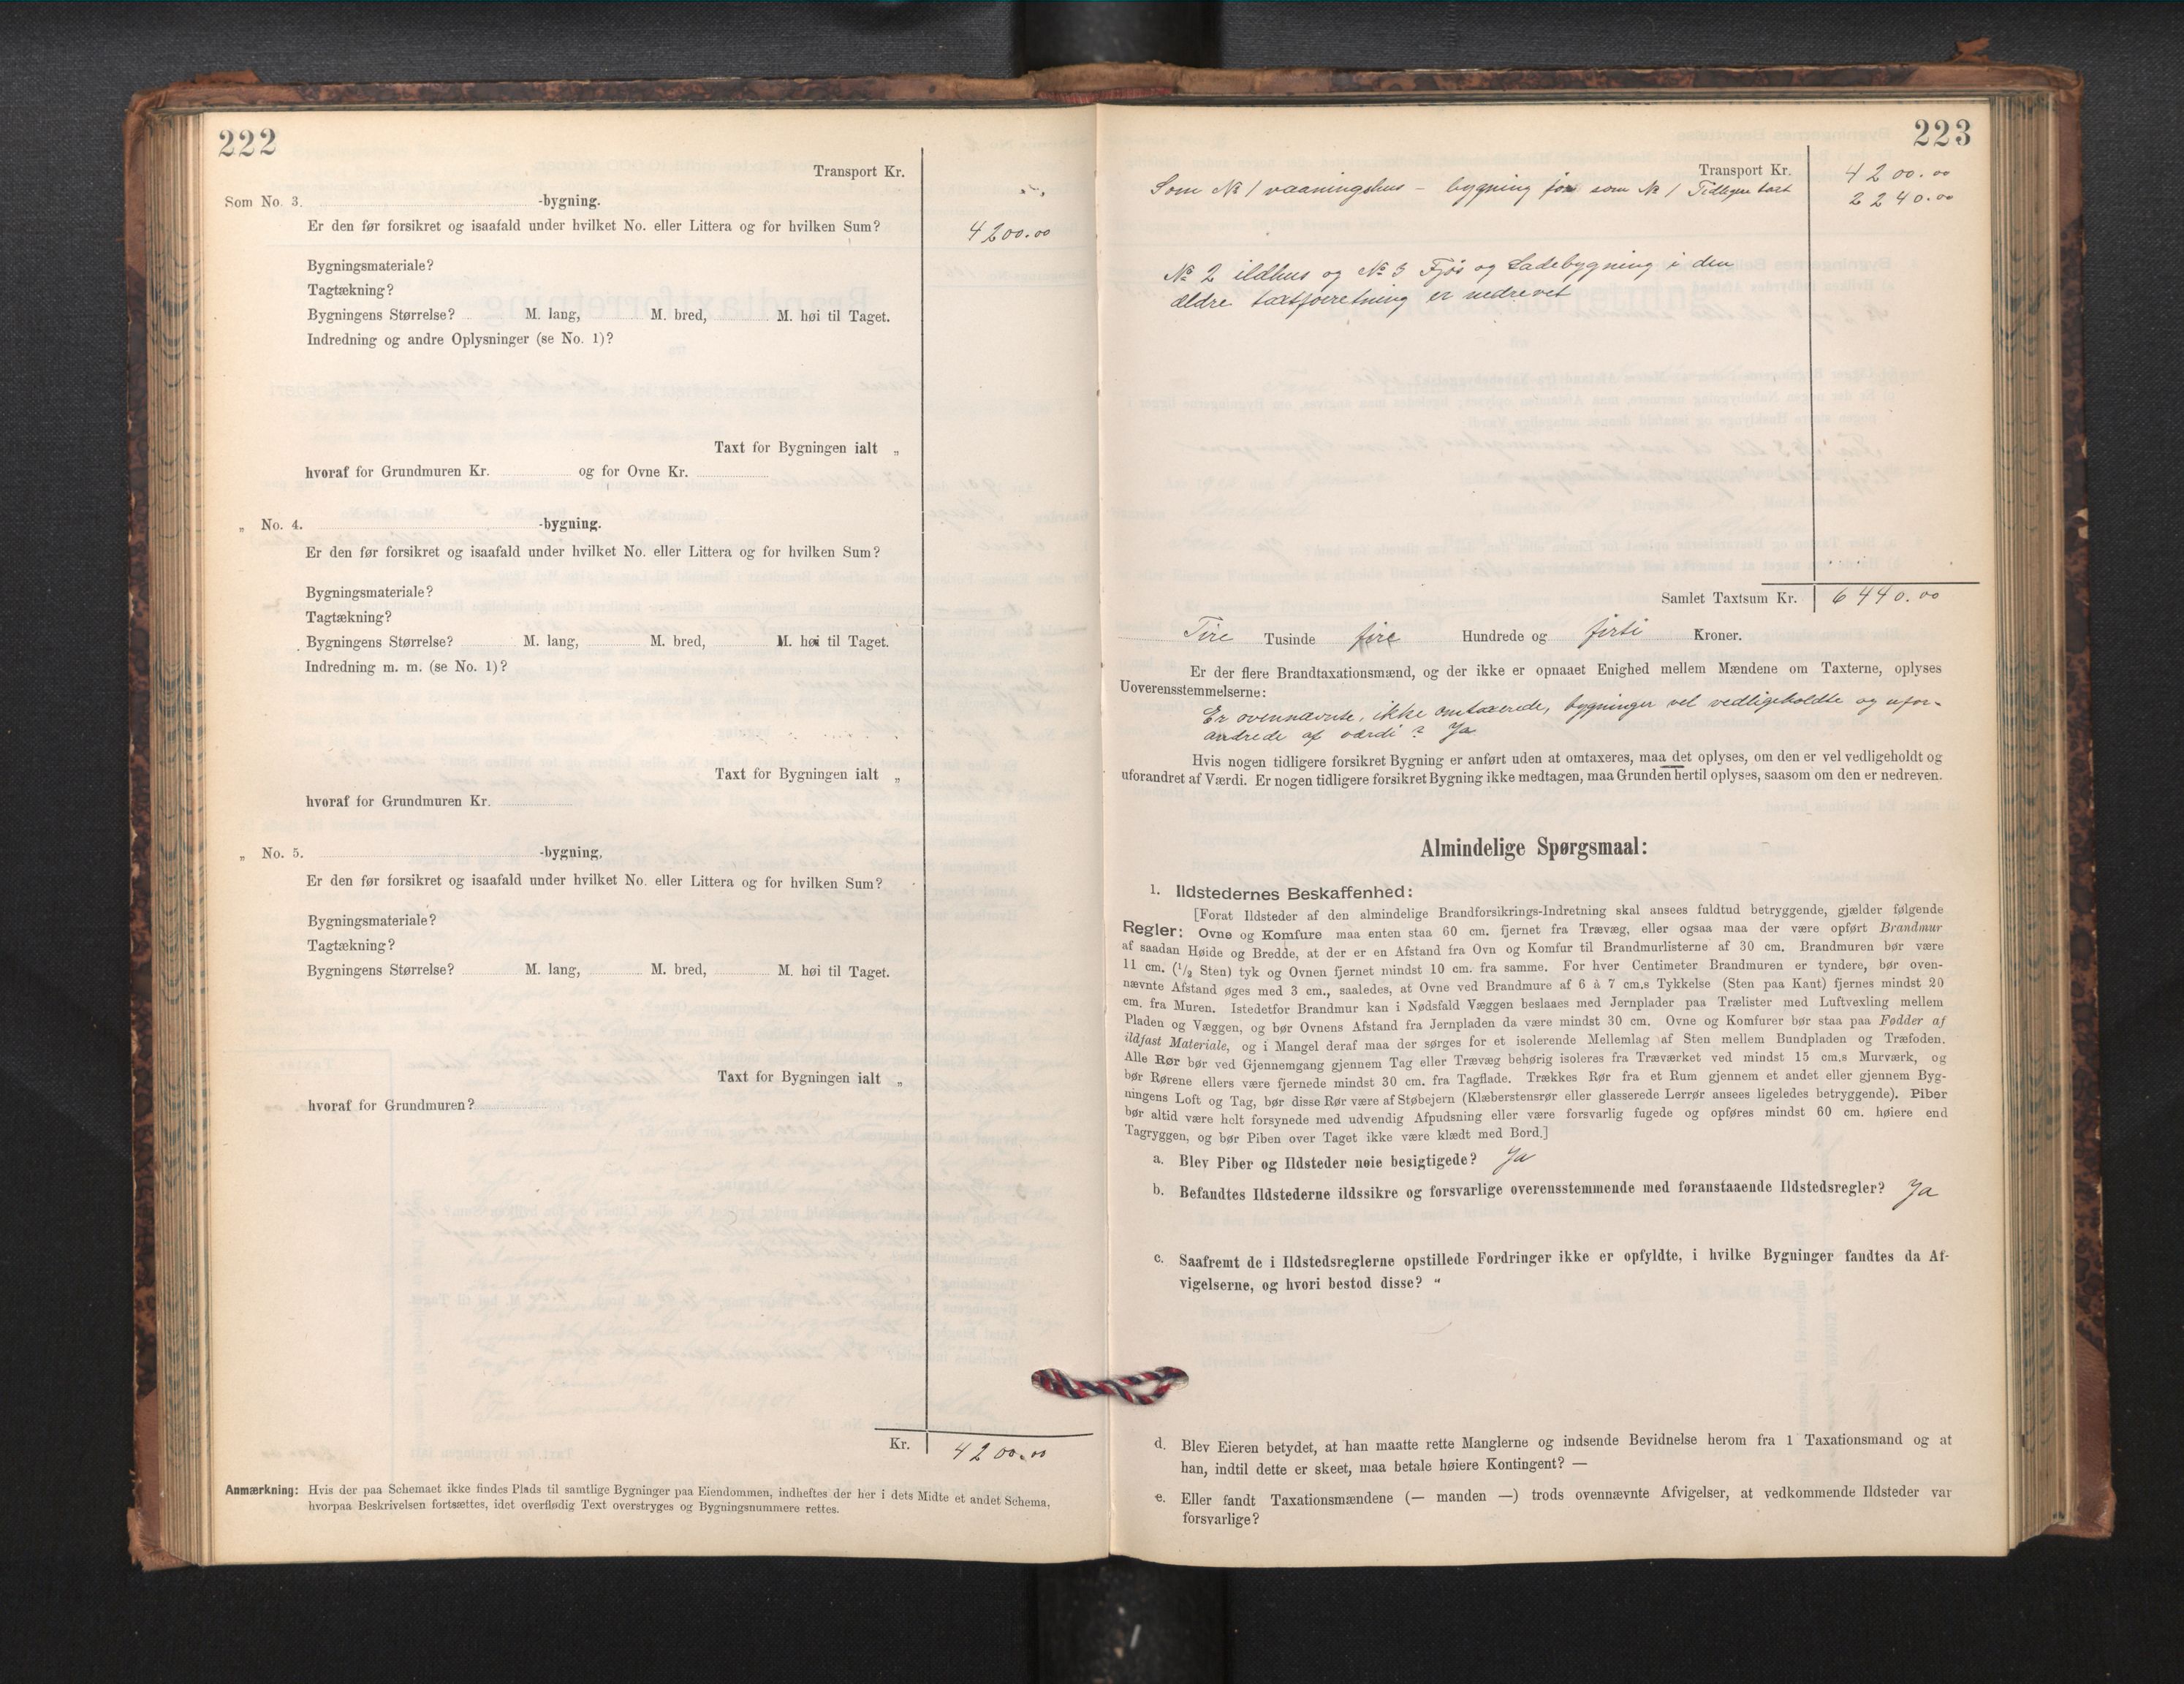 222
Transport Kr.
Som No. 3. -bygning.
Er den før forsikret og isaafald under hvilket No. eller Littera og for hvilken Sum?
4200.00
Bygningsmateriale?
Tagtækning?
Bygningens Størrelse? M. lang, M. bred, M. høi til Taget.
Indredning og andre Oplysninger (se No. 1)?
Taxt for Bygningen ialt „
hvoraf for Grundmuren Kr. og for Ovne Kr.
„ No. 4. -bygning.
Er den før forsikret og isaafald under hvilket No. eller Littera og for hvilken Sum?
Bygningsmateriale?
Tagtækning?
Bygningens Størrelse? M. lang, M. bred, M. høi til Taget.
Indredning m. m. (se No. 1)?
Taxt for Bygningen ialt „
hvoraf for Grundmuren Kr.
„ No. 5. -bygning,
Er den før forsikret og isaafald under hvilket No. eller Littera og for hvilken Sum?
Bygningsmateriale?
Tagtækning?
Bygningens Størrelse? M. lang, M. bred, M. høi til Taget.
Taxt for Bygningen ialt „
hvoraf for Grundmuren?
Kr. 4200.00
Anmærkning: Hvis der paa Schemaet ikke findes Plads til samtlige Bygninger paa Eiendommen, indheftes der her i dets Midte et andet Schema,
hvorpaa Beskrivelsen fortsættes, idet overflødig Text overstryges og Bygningsnummere rettes.
223
Transport Kr. 4200.00
Som № 1 vaaningshus – bygning før som № 1 Tidligere taxt 2240.00
№ 2 ildhus og № 3 Fjøs og Ladebygning i den
ældre taxtforretning er nedrevet
Samlet Taxtsum Kr. 6440.00
Tusinde fire Hundrede og firti Kroner.
Er der flere Brandtaxationsmænd, og der ikke er opnaaet Enighed mellem Mændene om Taxterne, oplyses
Uoverensstemmelserne:
Er ovennævnte, ikke omtaxerede, bygninger vel vedligeholdte og ufor-
andrede af værdi? Ja
Hvis nogen tidligere forsikret Bygning er anført uden at omtaxeres, maa det oplyses, om den er vel vedligeholdt og
uforandret af Værdi. Er nogen tidligere forsikret Bygning ikke medtagen, maa Grunden hertil oplyses, saasom om den er nedreven.
Almindelige Spørgsmaal:
1. Ildstedernes Beskaffenhed:
[Forat Ildsteder af den almindelige Brandforsikrings-Indretning skal ansees fuldtud betryggende, gjælder følgende
Regler: Ovne og Komfure maa enten staa 60 cm. fjernet fra Trævæg, eller ogsaa maa der være opført Brandmur
af saadan Høide og Bredde, at der er en Afstand fra Ovn og Komfur til Brandmurlisterne af 30 cm. Brandmuren bør være
11 cm. (1/2 Sten) tyk og Ovnen fjernet mindst 10 cm. fra samme. For hver Centimeter Brandmuren er tyndere, bør oven-
nævnte Afstand øges med 3 cm., saaledes, at Ovne ved Brandmure af 6 à 7 cm.s Tykkelse (Sten paa Kant) fjernes mindst 20
cm. fra Muren. Istedetfor Brandmur kan i Nødsfald Væggen beslaaes med Jernplader paa Trælister med Luftvexling mellem
Pladen og Væggen, og bør Ovnens Afstand fra Jernpladen da være mindst 30 cm. Ovne og Komfurer bør staa paa Fødder af
ildfast Materiale, og i Mangel deraf maa der sørges for et isolerende Mellemlag af Sten mellem Bundpladen og Træfoden.
Alle Rør bør ved Gjennemgang gjennem Tag eller Trævæg behørig isoleres fra Træværket ved mindst 15 cm.s Murværk, og
bør Rørene ellers være fjernede mindst 30 cm. fra Tagflade. Trækkes Rør fra et Rum gjennem et andet eller gjennem Byg-
ningens Loft og Tag, bør disse Rør være af Støbejern (Klæberstensrør eller glasserede Lerrør ansees ligeledes betryggende). Piber
bør altid være helt forsynede med udvendig Afpudsning eller være forsvarlig fugede og opføres mindst 60 cm. høiere end
Tagryggen, og bør Piben over Taget ikke være klædt med Bord.]
a. Blev Piber og Ildsteder nøie besigtigede? Ja
b. Befandtes Ildstederne ildssikre og forsvarlige overensstemmende med foranstaaende Ildstedsregler? Ja
c. Saafremt de i Ildstedsreglerne opstillede Fordringer ikke er opfyldte, i hvilke Bygninger fandtes da Af-
vigelserne, og hvori bestod disse? "
d. Blev Eieren betydet, at han maatte rette Manglerne og indsende Bevidnelse herom fra 1 Taxationsmand og at
han, indtil dette er skeet, maa betale høiere Kontingent? —
e. Eller fandt Taxationsmændene (— manden —) trods ovennævnte Afvigelser, at vedkommende Ildsteder var
forsvarlige?